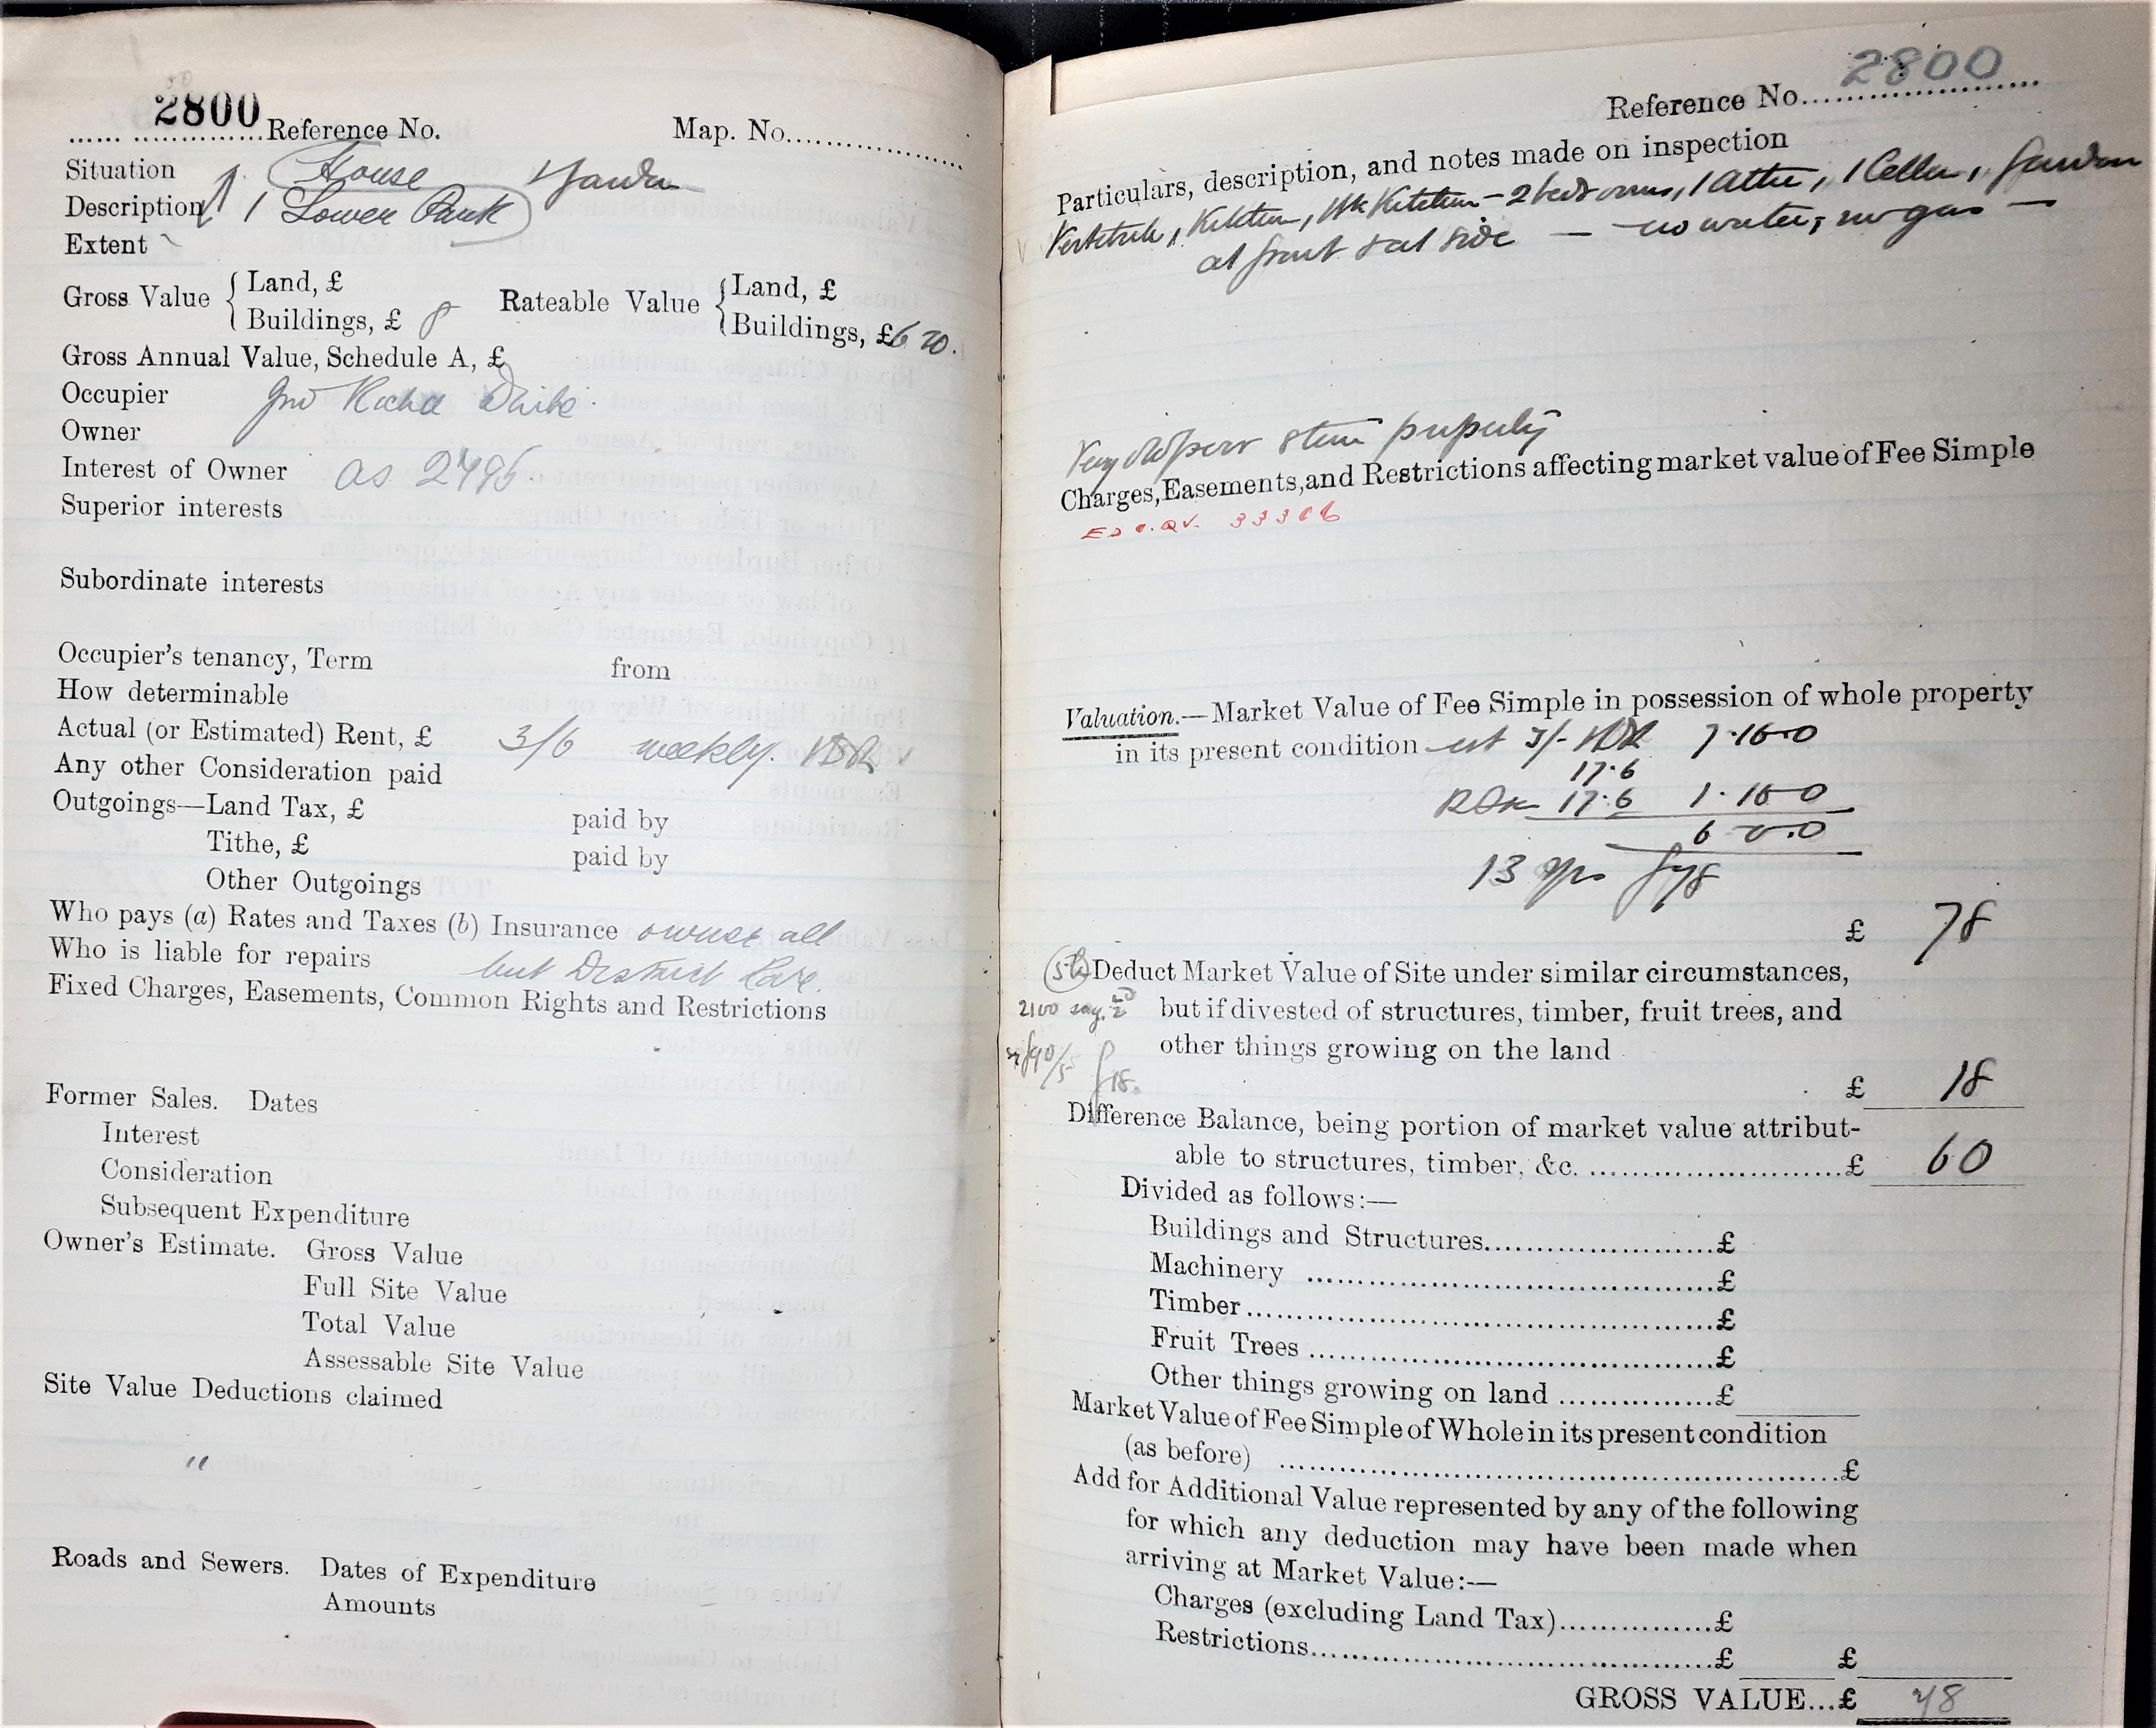 2800 Reference No. Map. No.
Situation House Garden
Description 1 Lower Bank
Extent
Gross Value { Land, £
Buildings, £ 8
Rateable Value { Land, £
Buildings, £ 6
Gross Annual Value, Schedule A, £
Occupier Jno White
Owner
Interest of Owner as 2795
Superior interests
Subordinate interests
Occupier's tenancy, Term from
How determinable
Actual (or Estimated) Rent, £ 3/6 weekly.
Any other Consideration paid
Outgoings—Land Tax, £ paid by
Tithe, £ paid by
Other Outgoings
Who pays (a) Rates and Taxes (b) Insurance owner all
Who is liable for repairs but District Rate.
Fixed Charges, Easements, Common Rights and Restrictions
Former Sales. Dates
Interest
Consideration
Subsequent Expenditure
Owner's Estimate. Gross Value
Full Site Value
Total Value
Assessable Site Value
Site Value Deductions claimed
"
Roads and Sewers. Dates of Expenditure
Amounts
Reference No. 2800
Particulars, description, and notes made on inspection
Kitchen, Wk Kitchen - 2 bedrooms, 1 attic, 1 Cellar, Garden
at front & at side — no water, no gas —
Very old poor stone property
Charges, Easements, and Restrictions affecting market value of Fee Simple
33366
Valuation.—Market Value of Fee Simple in possession of whole property
in its present condition est 3/- 7.16.0
17.6
17.6 1.16.0
6.0.0
13 yrs £78
£ 78
Deduct Market Value of Site under similar circumstances,
2100 say
but if divested of structures, timber, fruit trees, and
other things growing on the land
£18.
£ 18
Difference Balance, being portion of market value attribut-
able to structures, timber, &c. £ 60
Divided as follows:—
Buildings and Structures £
Machinery £
Timber £
Fruit Trees £
Other things growing on land £
Market Value of Fee Simple of Whole in its present condition
(as before) £
Add for Additional Value represented by any of the following
for which any deduction may have been made when
arriving at Market Value:—
Charges (excluding Land Tax) £
Restrictions £ £
GROSS VALUE...£ 78